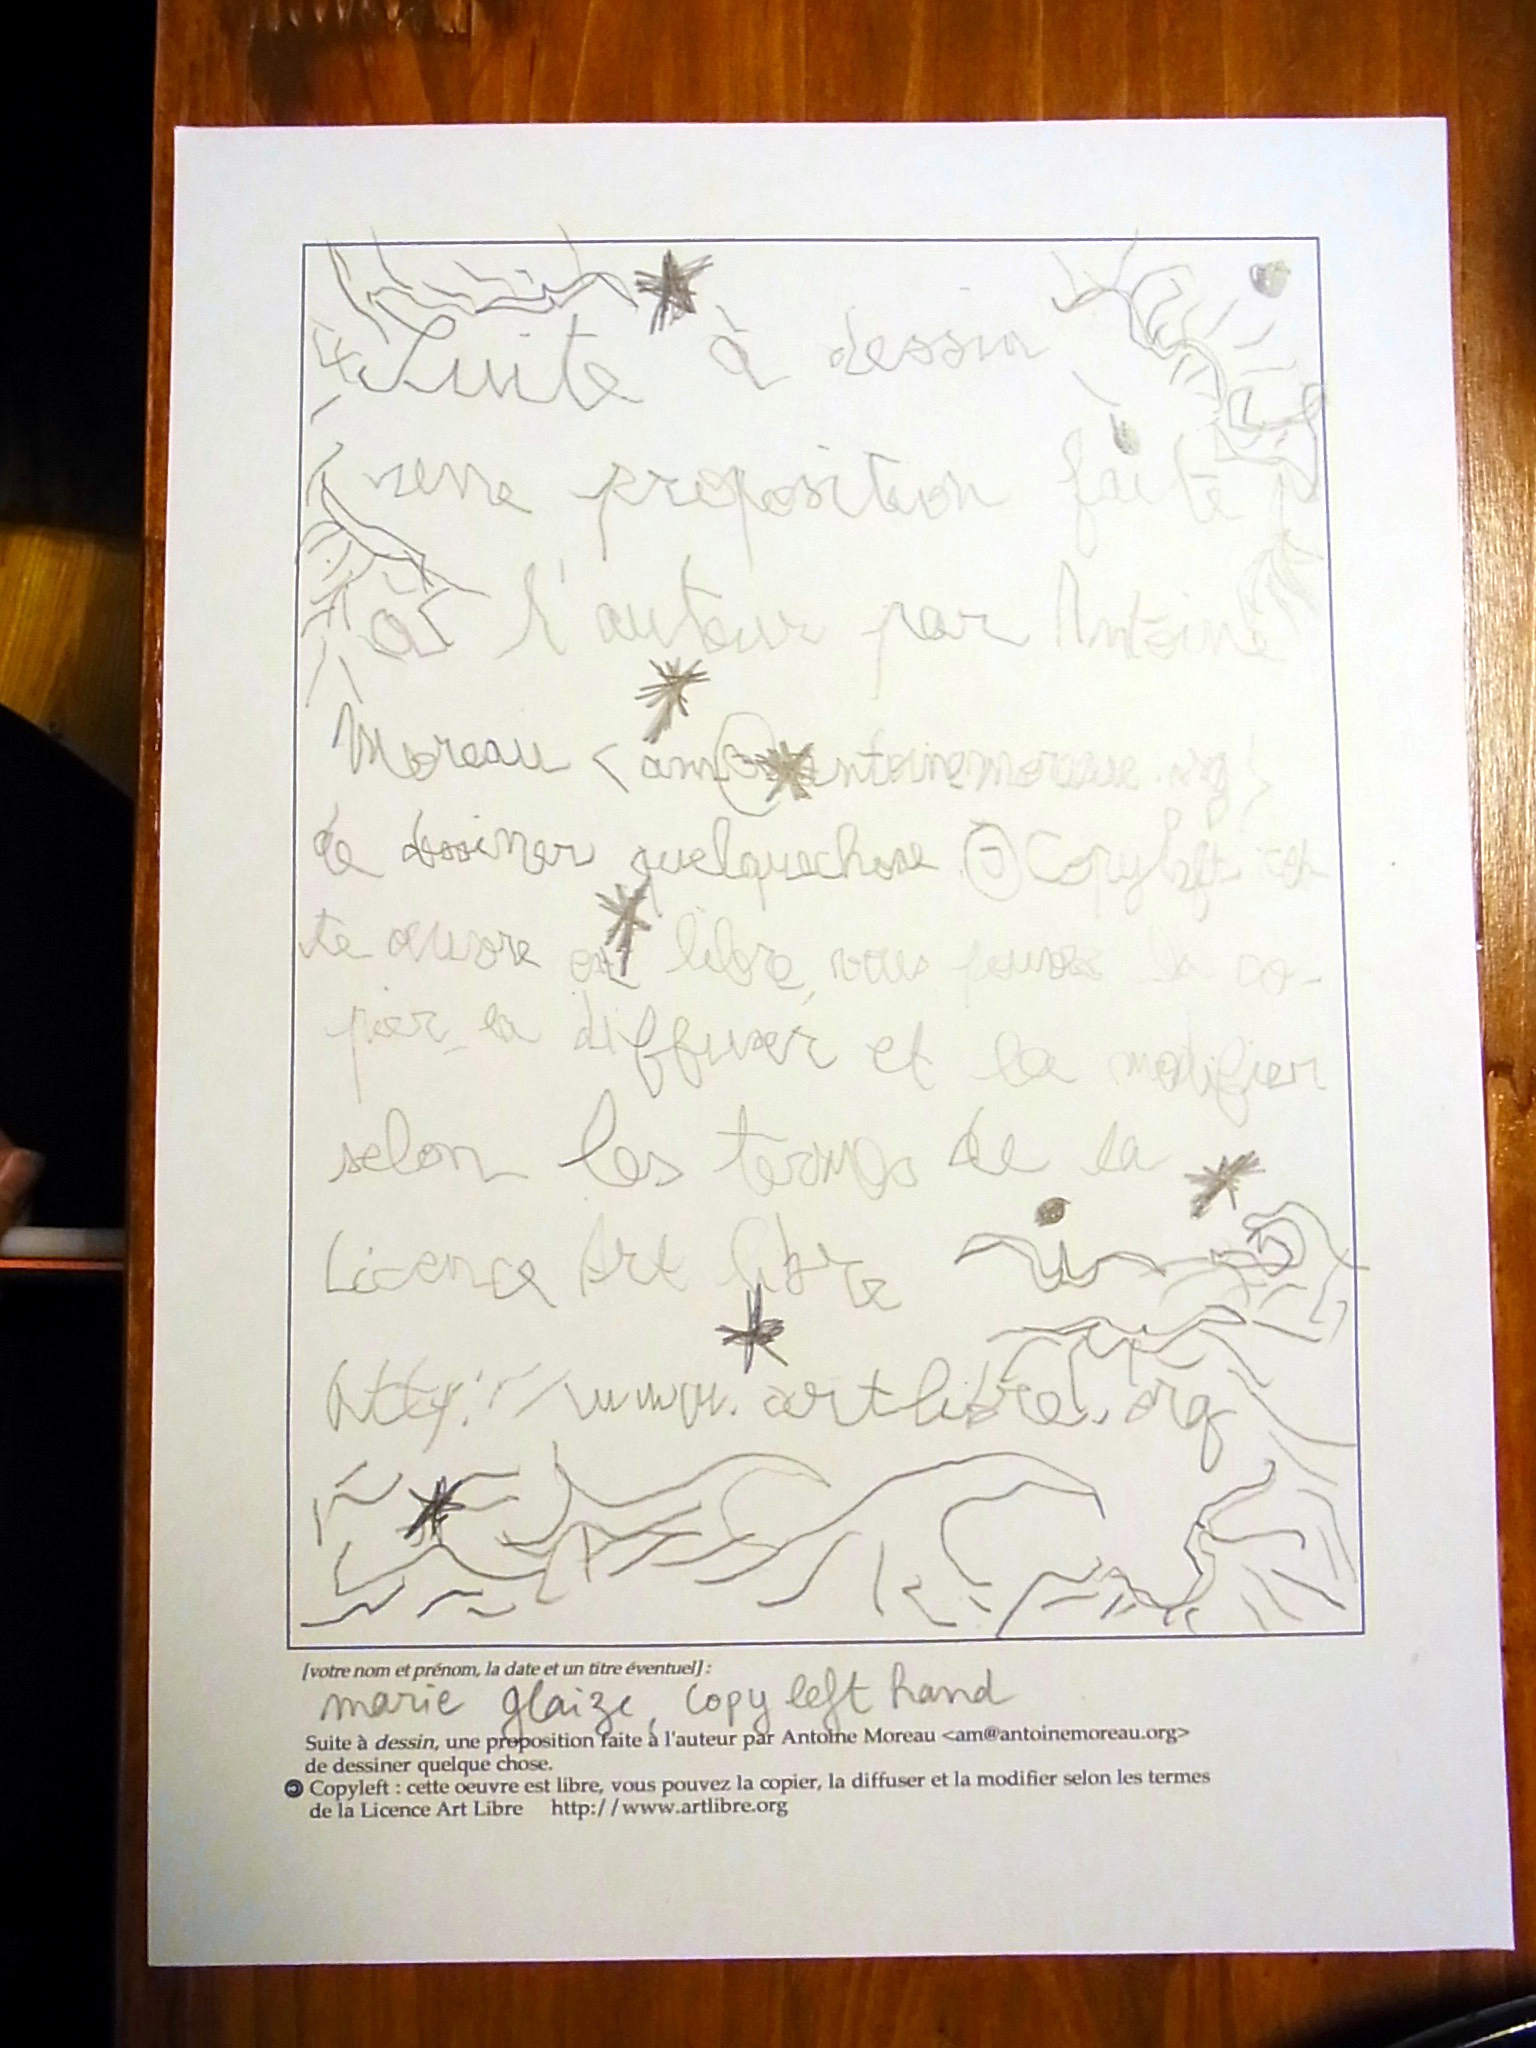 Suite à dessin
une proposition faite
à l'auteur par Antoine
Moreau <am@antoinemoreau.org>
de dessiner quelquechose Copyleft cet
te oeuvre est libre, vous pouvez la co-
pier, la diffuser et la modifier
selon les termes de la
Licence Art libre
http://www.artlibre.org
[votre nom et prénom, la date et un titre éventuel] :
marie glaize, copy left hand
Suite à dessin, une proposition faite à l'auteur par Antoine Moreau <am@antoinemoreau.org>
de dessiner quelque chose.
Copyleft : cette oeuvre est libre, vous pouvez la copier, la diffuser et la modifier selon les termes
de la Licence Art Libre http://www.artlibre.org